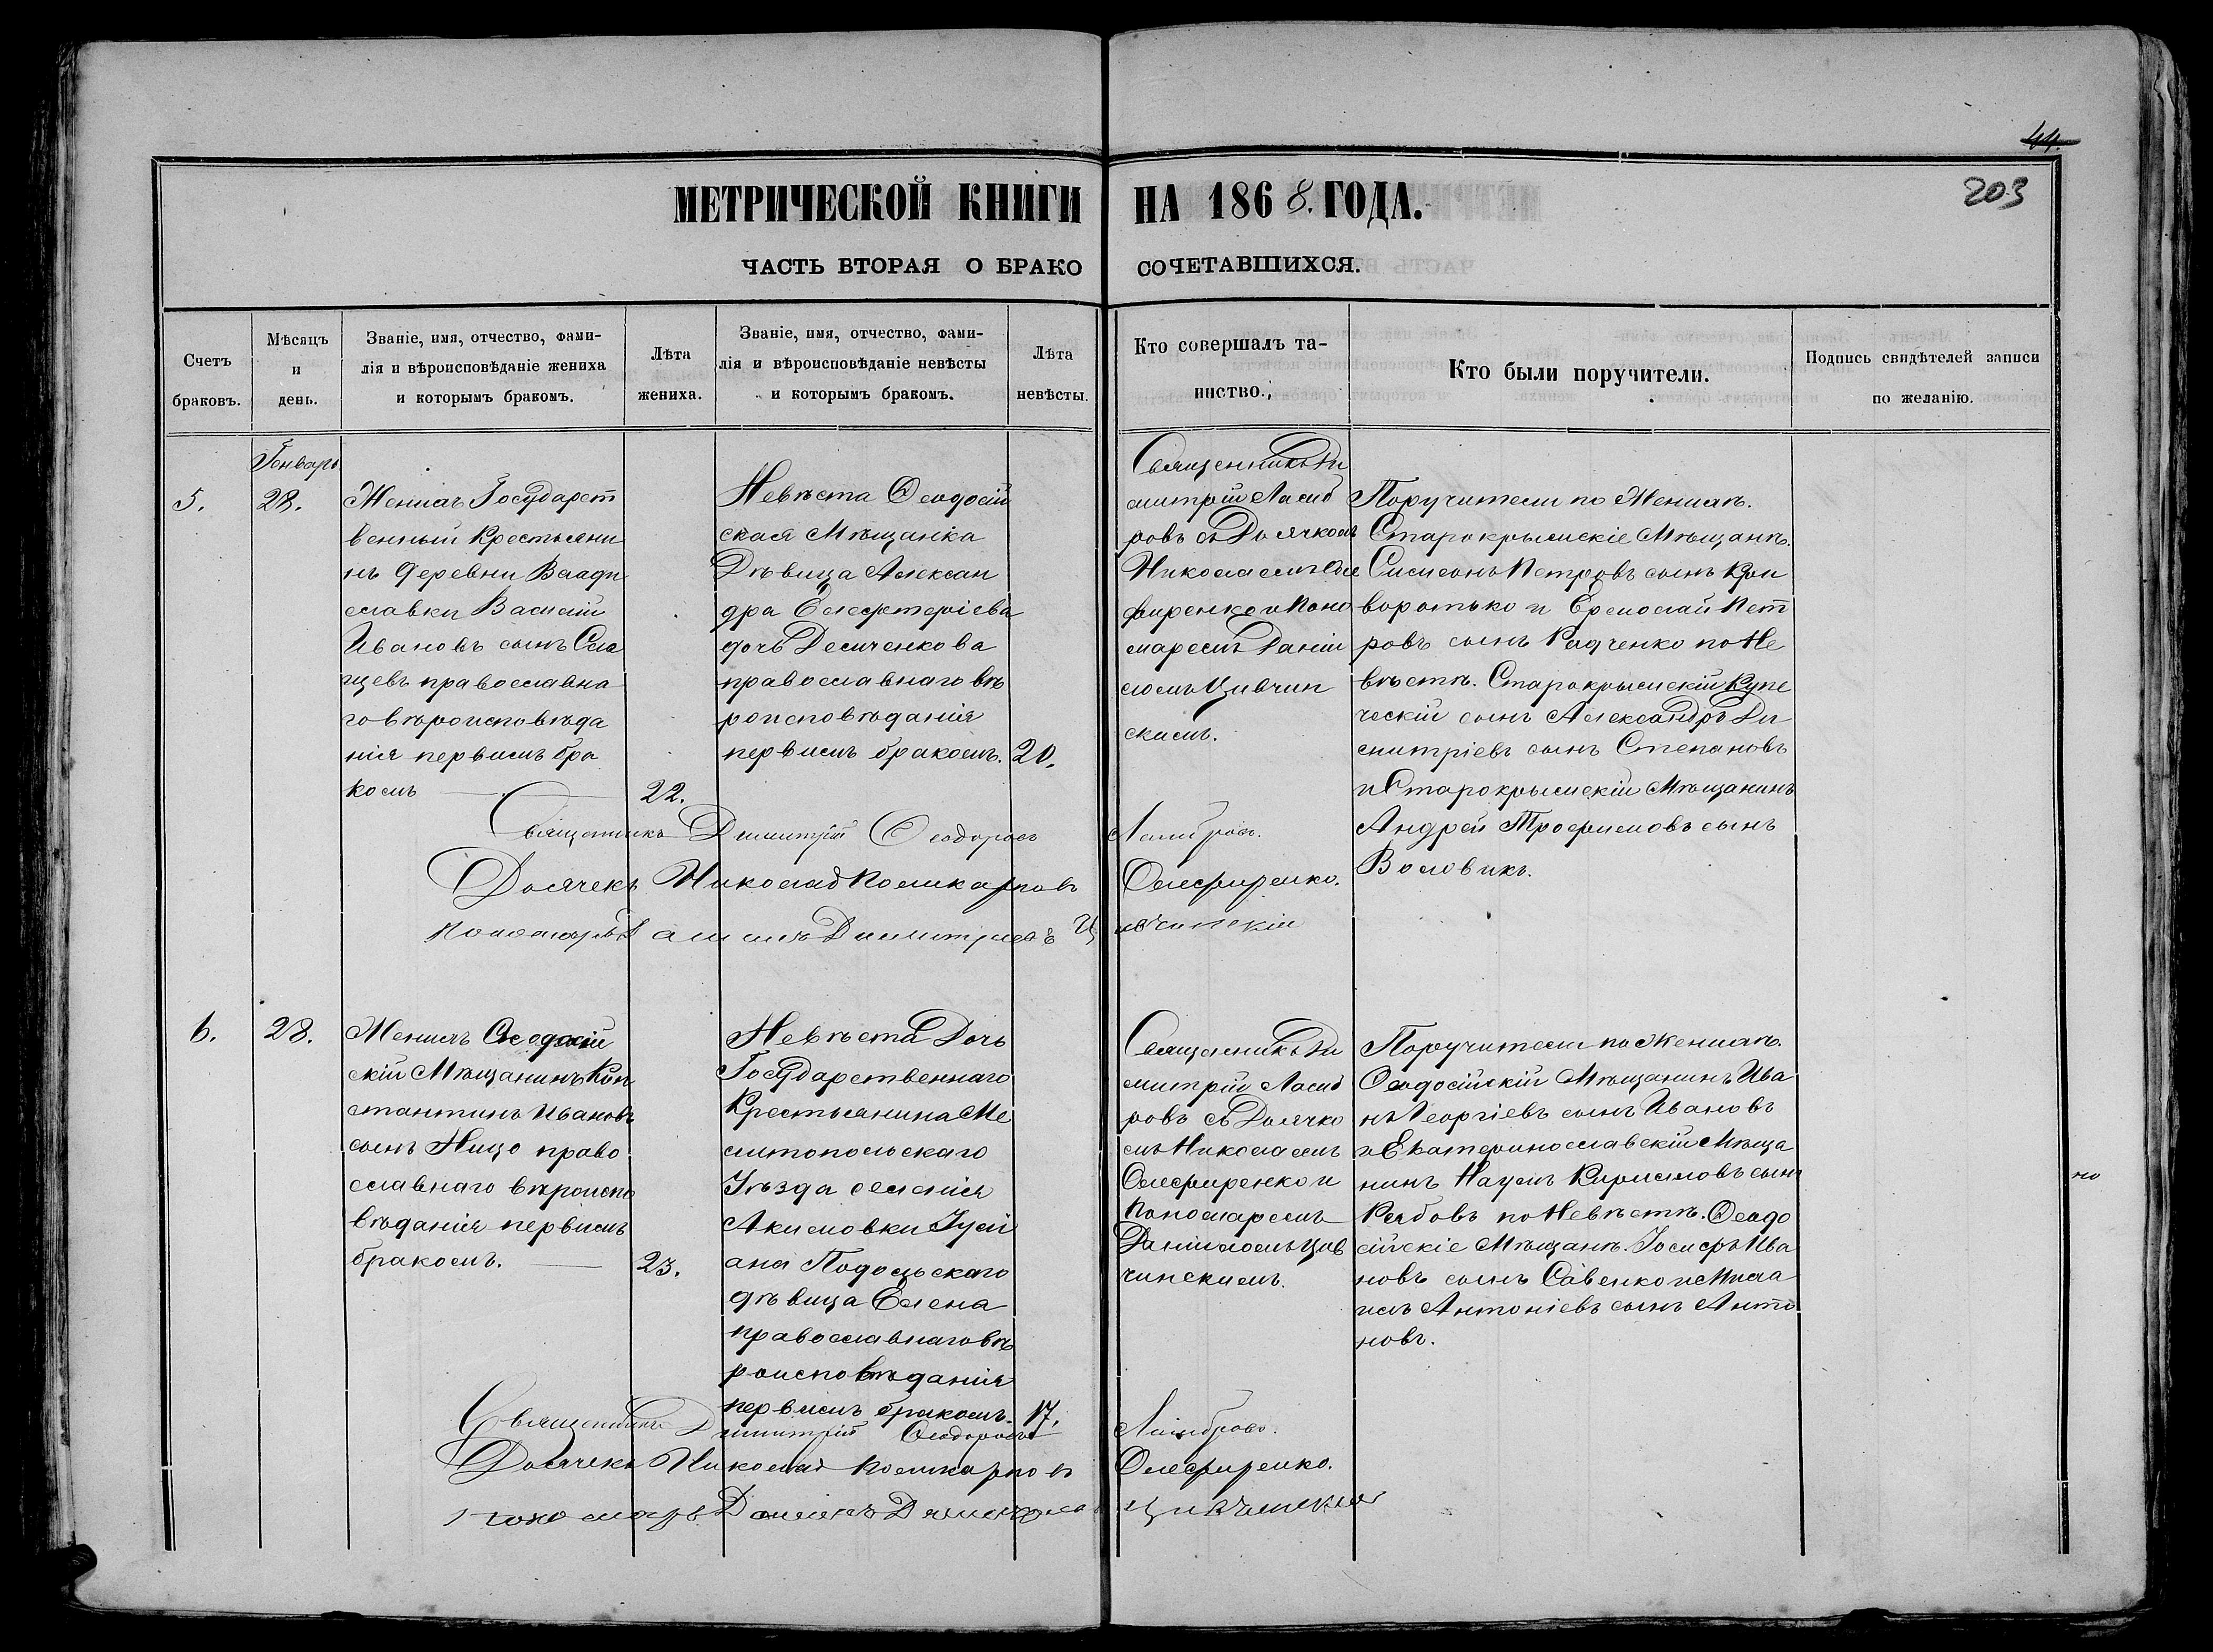 44.
203
МЕТРИЧЕСКОЙ КНИГИ НА 1868. ГОДА.
ЧАСТЬ ВТОРАЯ О БРАКО СОЧЕТАВШИХСЯ.
Счетъ
браковъ.
Мѣсяцъ
и
день.
Званіе, имя, отчество, фами-
лія и вѣроисповѣданіе жениха
и которымъ бракомъ.
Лѣта
жениха.
Званіе, имя, отчество, фами-
лія и вѣроисповѣданіе невѣсты
и которымъ бракомъ.
Лѣта
невѣсты.
Кто совершалъ та-
инство.
Кто были поручители.
Подпись свидѣтелей записи
по желанію.
5.
Генварь
28.
Женихъ Государст
венный Крестьяни
нъ деревни Влади
славки Василій
Ивановъ сынъ
православна
го вѣроисповѣда
нія первымъ бра
комъ
22.
Невѣста Ѳеодосій
ская Мѣщанка
Дѣвица Алексан
дра Елефтеріева
дочь Демченкова
православнаго вѣ
роисповѣданія
первымъ бракомъ.
20.
Священникъ Ди
митрій Ламб
ровъ съ Дьячкомъ
Николаемъ Оле
фиренко и Поно
маремъ Даніи
ломъ Цивчин
скимъ.
Поручители по Женихѣ.
Старокрымскіе Мѣщанѣ.
Симеонъ Петровъ сынъ Кри
воротько и Ермолай Пет
ровъ сынъ Радченко по Не
вѣстѣ. Старокрымскій Купе
ческій сынъ Александръ Ди
митріевъ сынъ Степановъ
и Старокрымскій Мѣщанинъ
Андрей Трофимовъ сынъ
Воловикъ.
Священникъ Димитрій Ѳеодоровъ Ламбровъ.
Дьячекъ Николай Поликарповъ Олефиренко.
Пономарь Даніилъ Димитріевъ Цивчинскій
6.
28.
Женихъ Ѳеодосій
скій Мѣщанинъ Кон
стантинъ Ивановъ
сынъ Ницо право
славнаго вѣроиспо
вѣданія первымъ
бракомъ.
23.
Невѣста Дочь
Государственнаго
Крестьянина Ме
литопольскаго
Уѣзда селенія
Акимовки Іулі
ана Подольскаго
дѣвица Елена
православнаго вѣ
роисповѣданія
первымъ бракомъ.
17.
Священникъ Ди
митрій Ламб
ровъ съ Дьячко
мъ Николаемъ
Олефиренко и
Пономаремъ
Даніиломъ Цив
чинскимъ.
Поручители по Женихѣ.
Ѳеодосійскій Мѣщанинъ Ива
нъ Георгіевъ сынъ Ивановъ
и Екатеринославскій Мѣща
нинъ Наумъ Кирилловъ сынъ
Рябовъ по Невѣстѣ. Ѳеодо
сійскіе Мѣщанѣ. Іосифъ Ива
новъ сынъ Савенко и Миха
илъ Антоніевъ сынъ Анто
новъ.
но
Священникъ Димитрій Ѳеодоровъ Ламбровъ.
Дьячекъ Николай Поликарповъ Олефиренко.
Пономарь Даніилъ Димитріевъ Цивчинскій